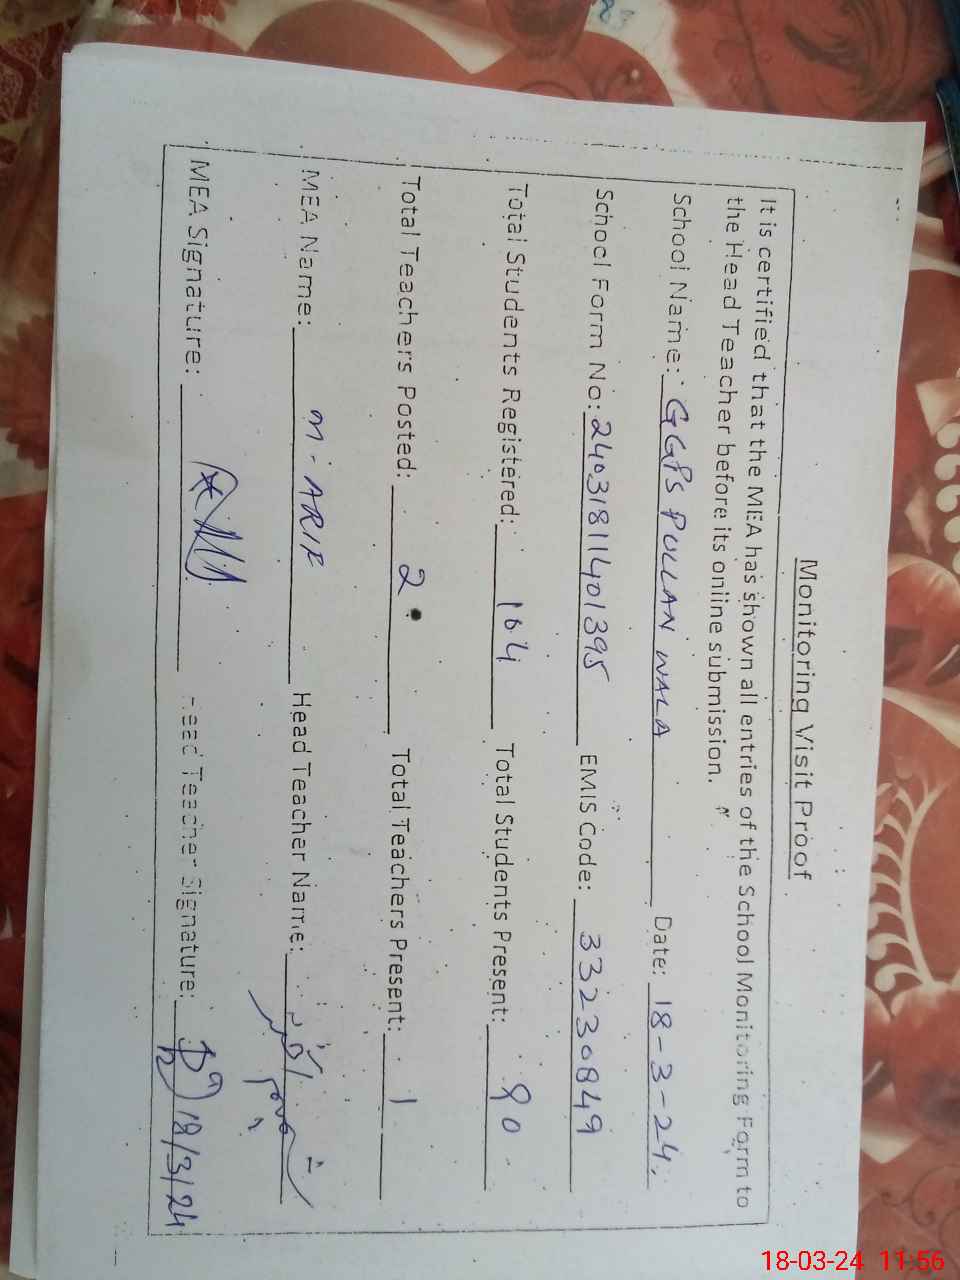 Monitoring Visit Proof
It is certified that the MEA has shown all entries of the School Monitoring Form to
the Head Teacher before its online submission.
School Name: GGPS PULLAN WALA Date: 18-3-24
School Form No: 24031811401395 EMIS Code: 33230849
Total Students Registered: 164 Total Students Present: 90
Total Teachers Posted: 2 Total Teachers Present: 1
MEA Name: M. ARIF Head Teacher Name:
MEA Signature: Head Teacher Signature: 18/3/24
18-03-24 11:56